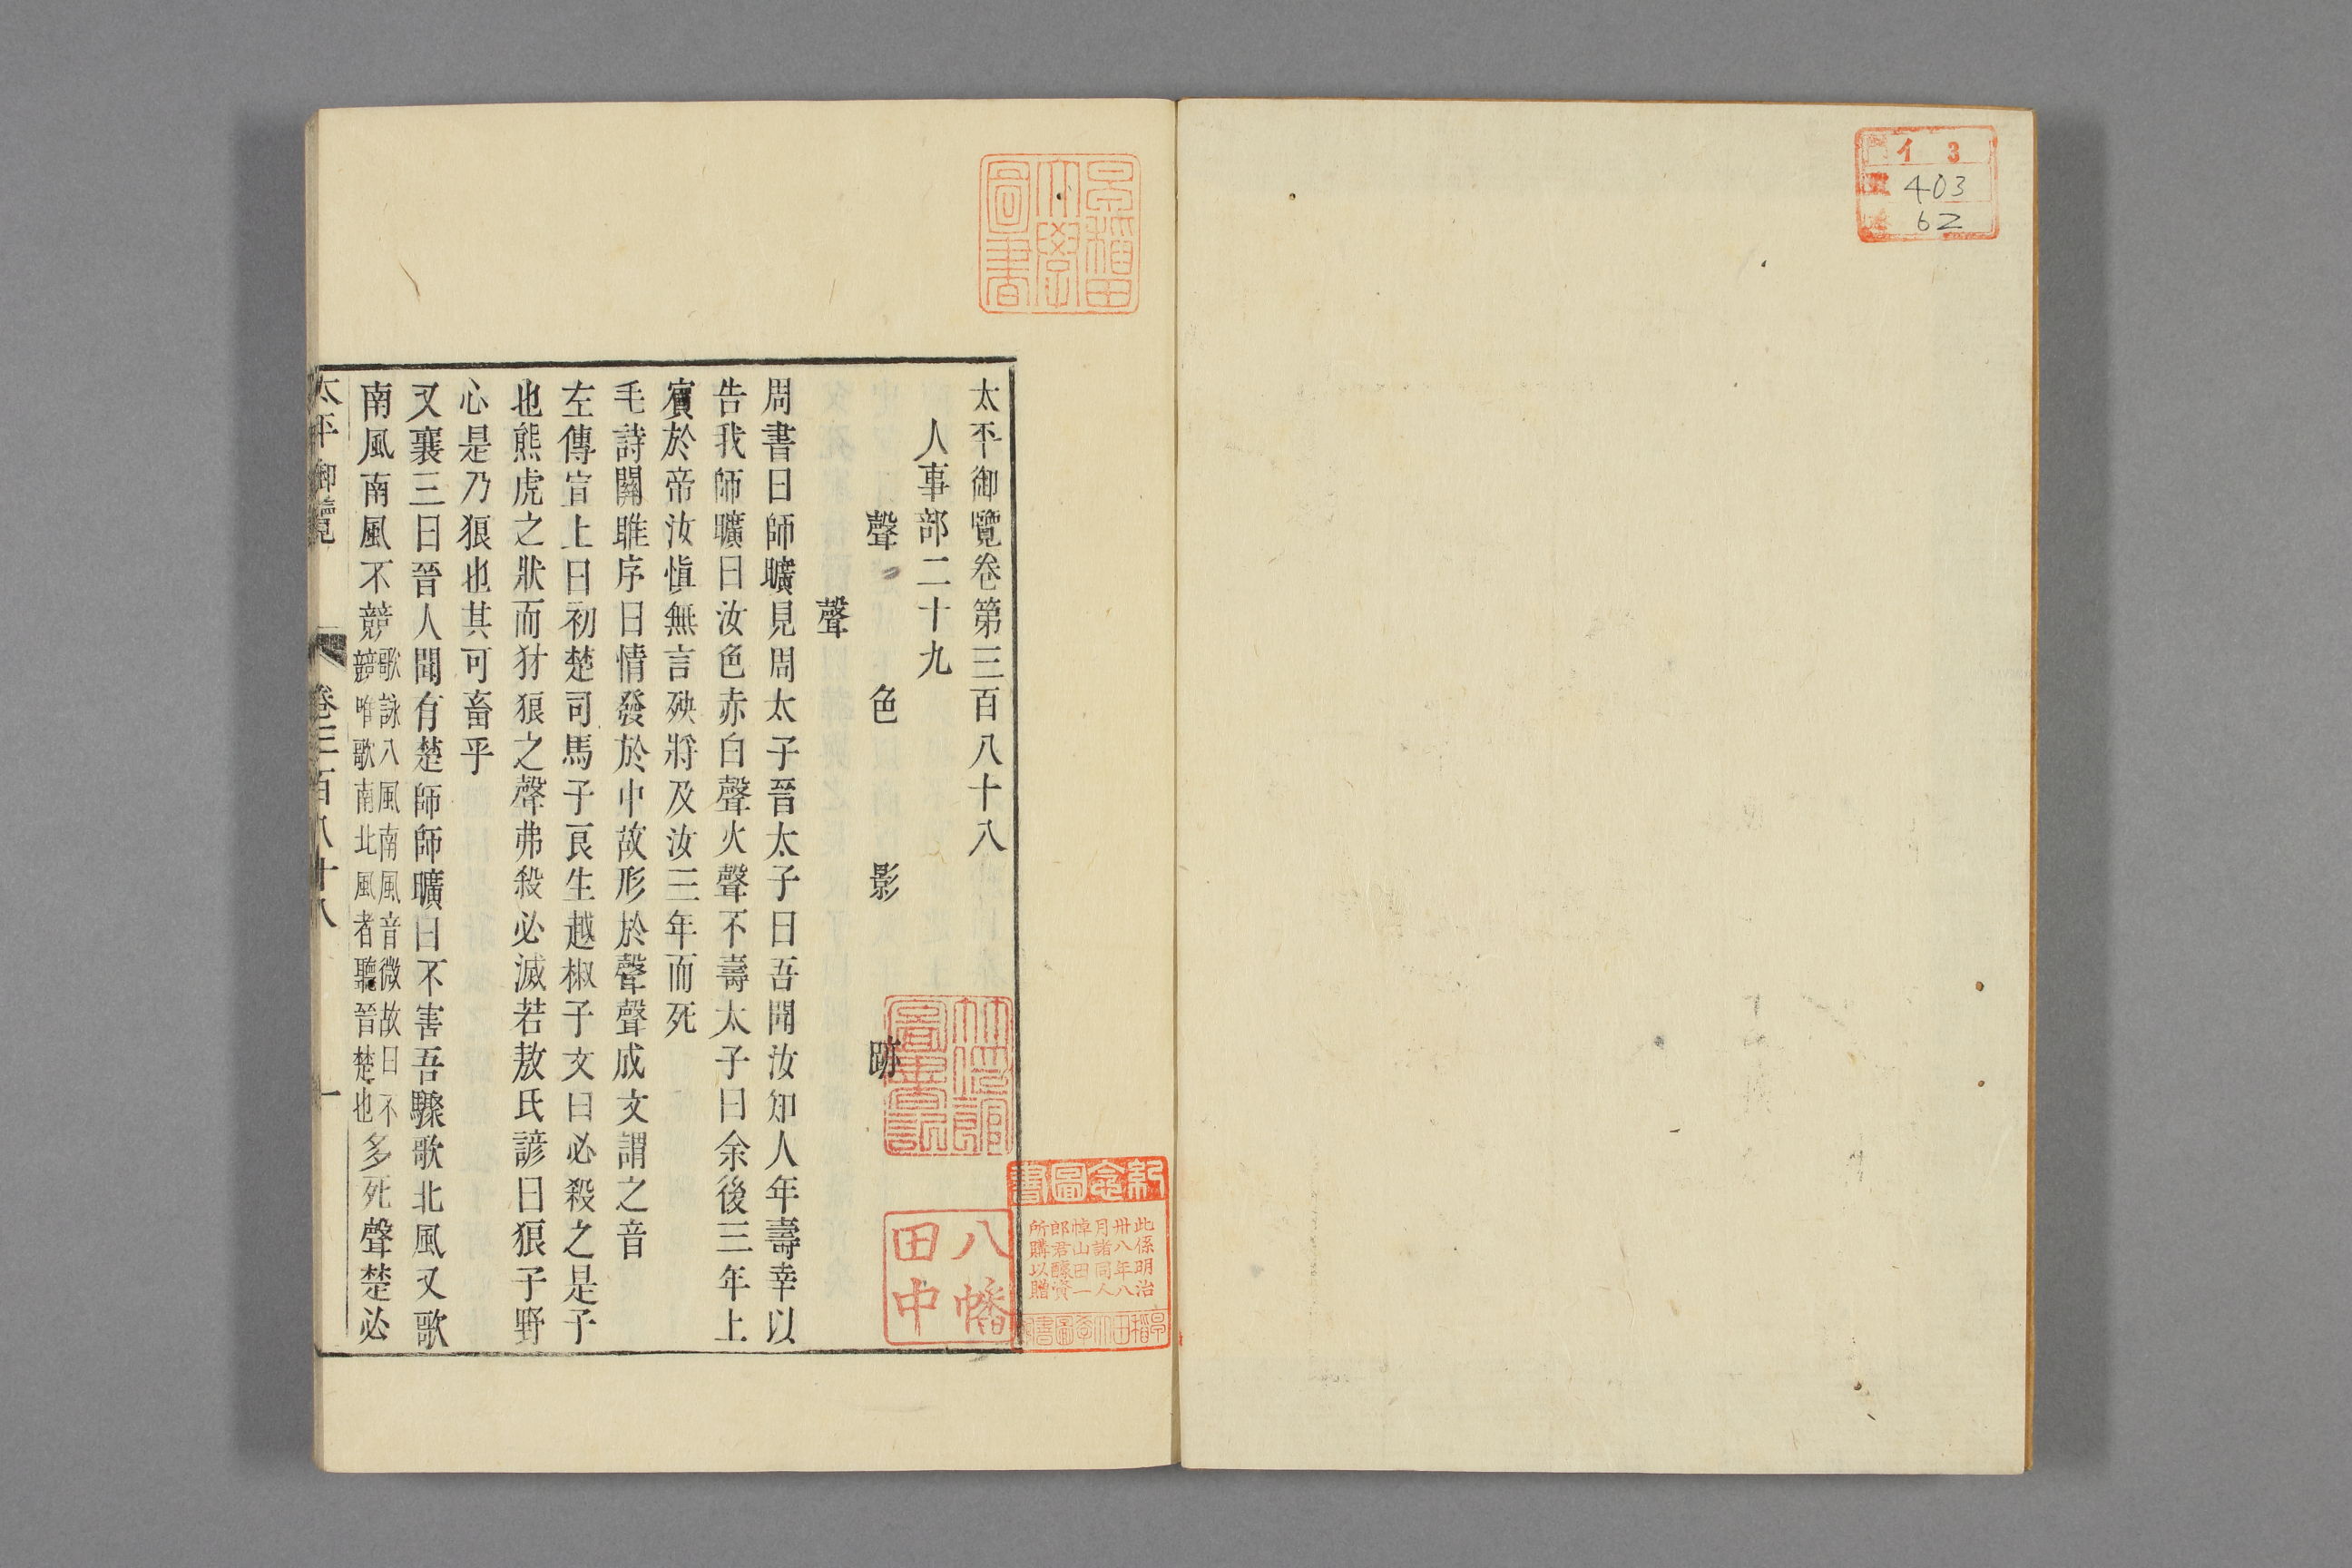 イ 3
403
62
早稲田
大學
圖書
太平御覽卷第三百八十八
人事部二十九
聲 色 影 跡
聲
周書曰師曠見周太子晉太子曰吾聞汝知人年壽幸以
告我師曠曰汝色赤白聲火聲不壽太子曰余後三年上
賓於帝汝愼無言殃將及汝三年而死
毛詩關雎序曰情發於中故形於聲聲成文謂之音
左傳宣上曰初楚司馬子良生越椒子文曰必殺之是子
也熊虎之狀而犲狼之聲弗殺必滅若敖氏諺曰狼子野
心是乃狼也其可畜乎
又襄三曰晉人聞有楚師師曠曰不害吾驟歌北風又歌
南風南風不競歌詠八風南風音微故曰不競唯歌南北風者聽晉楚也多死聲楚必
太平御覽 卷三百八十八 一
八幡
田中
紀念圖書
此係明治
卅八年八
月諸同人
悼山田一
郎君醵資
所購以贈